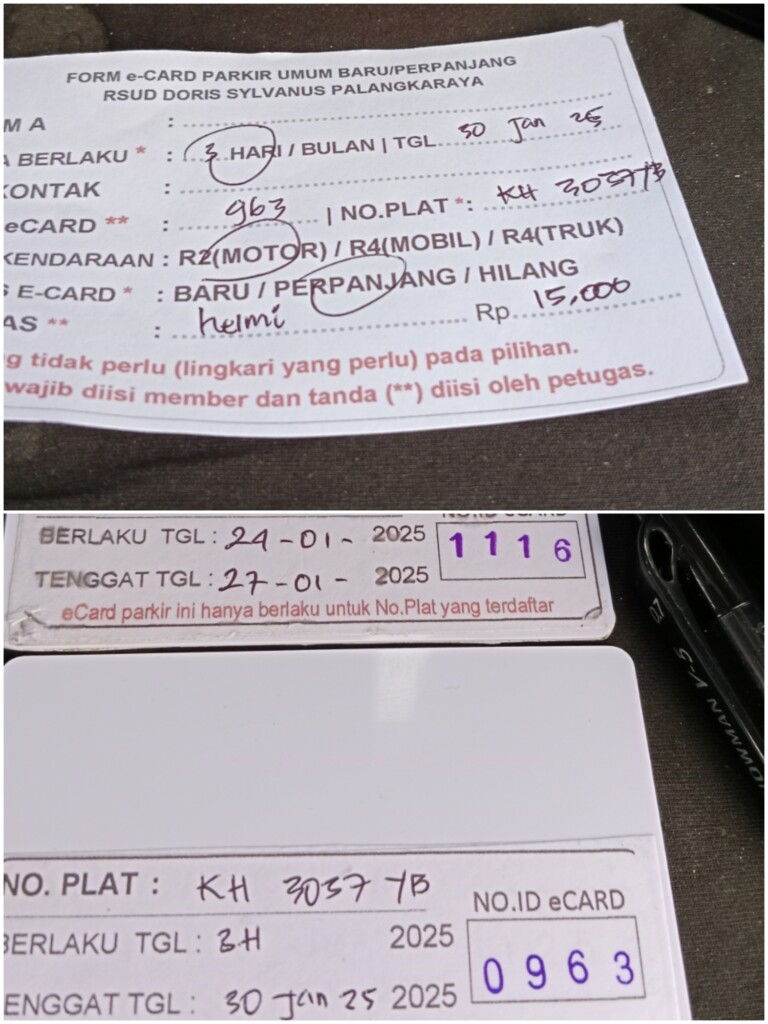 FORM e-CARD PARKIR UMUM BARU/PERPANJANG
RSUD DORIS SYLVANUS PALANGKARAYA
M A : ....................
BERLAKU * : (..3..HARI / BULAN | TGL 30 Jan 25
KONTAK : ....................
eCARD ** : 963 | NO.PLAT *: KH 3037 YB
KENDARAAN : R2(MOTOR) / R4(MOBIL) / R4(TRUK)
E-CARD * : BARU / PERPANJANG / HILANG
AS ** : helmi Rp. 15,000
g tidak perlu (lingkari yang perlu) pada pilihan.
wajib diisi member dan tanda (**) diisi oleh petugas.
BERLAKU TGL : 24-01- 2025
1116
TENGGAT TGL : 27-01- 2025
eCard parkir ini hanya berlaku untuk No.Plat yang terdaftar
NO. PLAT : KH 3037 YB
NO.ID eCARD
BERLAKU TGL : 3H 2025
0963
ENGGAT TGL : 30 Jan 25 2025
OWMAN V-5